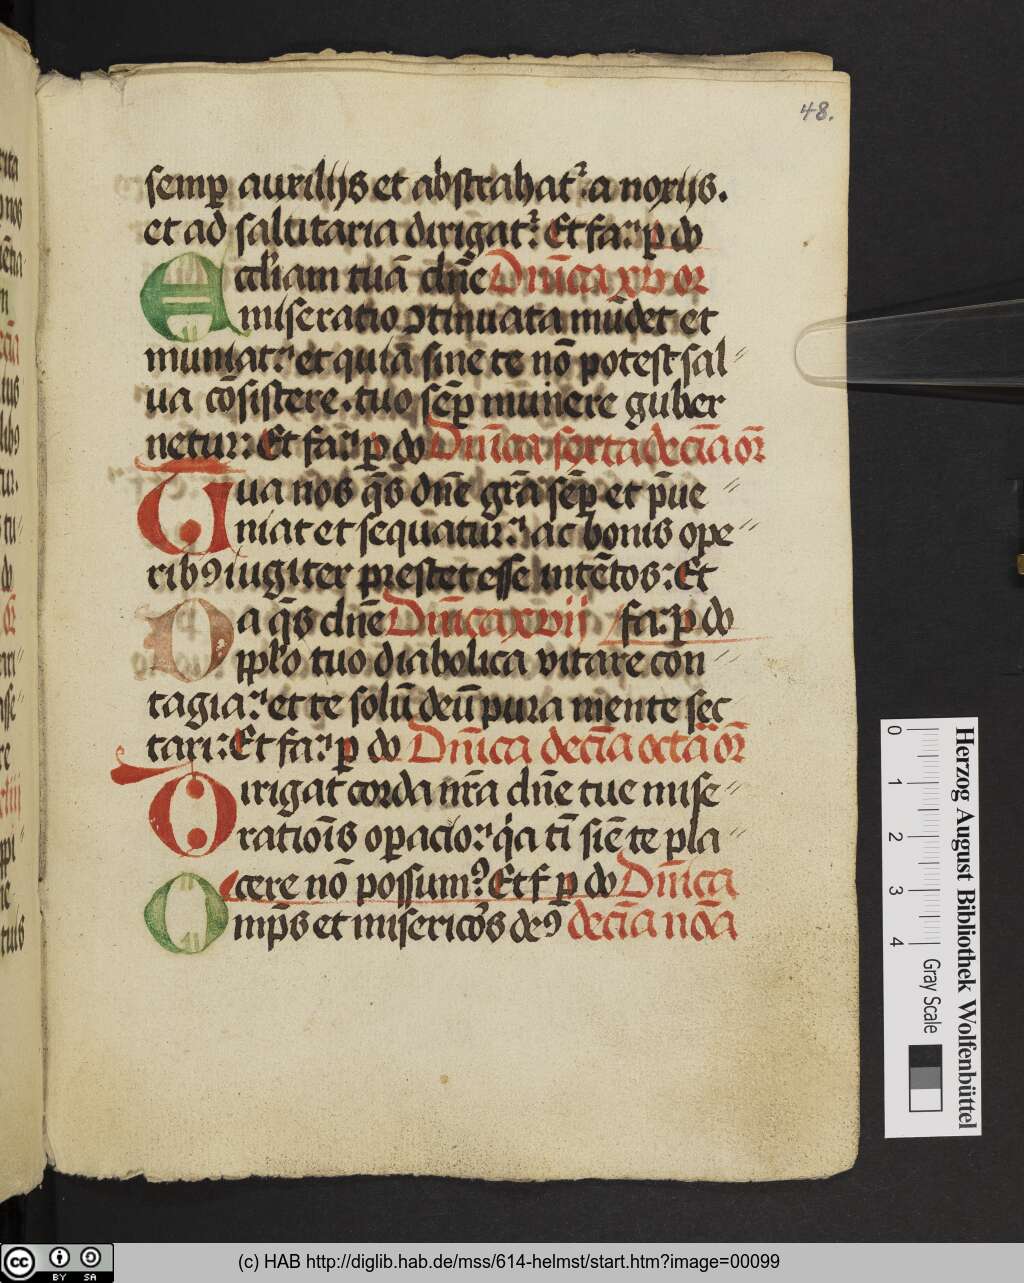 48.
semꝑ auxilijs et abstrahatʳ. a noxijs.
et ad salutaria dirigatʳ: Et fa: ꝑ do
Ecclīam tuā dn̄e Dn̄ica xv or
miseratio ꝯtinuata mūdet et
muniatʳ: et quia sine te nō potest sal
ua cōsistere. tuo sēꝑ munere guber
netur: Et fa: ꝑ do Dn̄ica sexta deciā or̄
Tua nos q̄s dn̄e gr̄a sēꝑ et p̄ue
niat et sequatur: ac bonis ope
ribꝰ iugiter prestet esse intētos: Et
Da q̄s dn̄e Dn̄ica xvij fa: ꝑ do
ppl̄o tuo diabolica vitare con
tagia: et te solū deū pura mente sec
tari: Et fa: ꝑ do Dn̄ica deciā octā or̄
Dirigat corda nr̄a dn̄e tue mise
rationis oꝑacio: q̇a ti sine te pla
cere nō possum9: Et f ꝑ do Dn̄ica
Omp̄s et misericōs deꝰ deciā nōa
0 1 2 3 4
Gray Scale
Herzog August Bibliothek Wolfenbüttel
cc BY SA
(c) HAB http://diglib.hab.de/mss/614-helmst/start.htm?image=00099